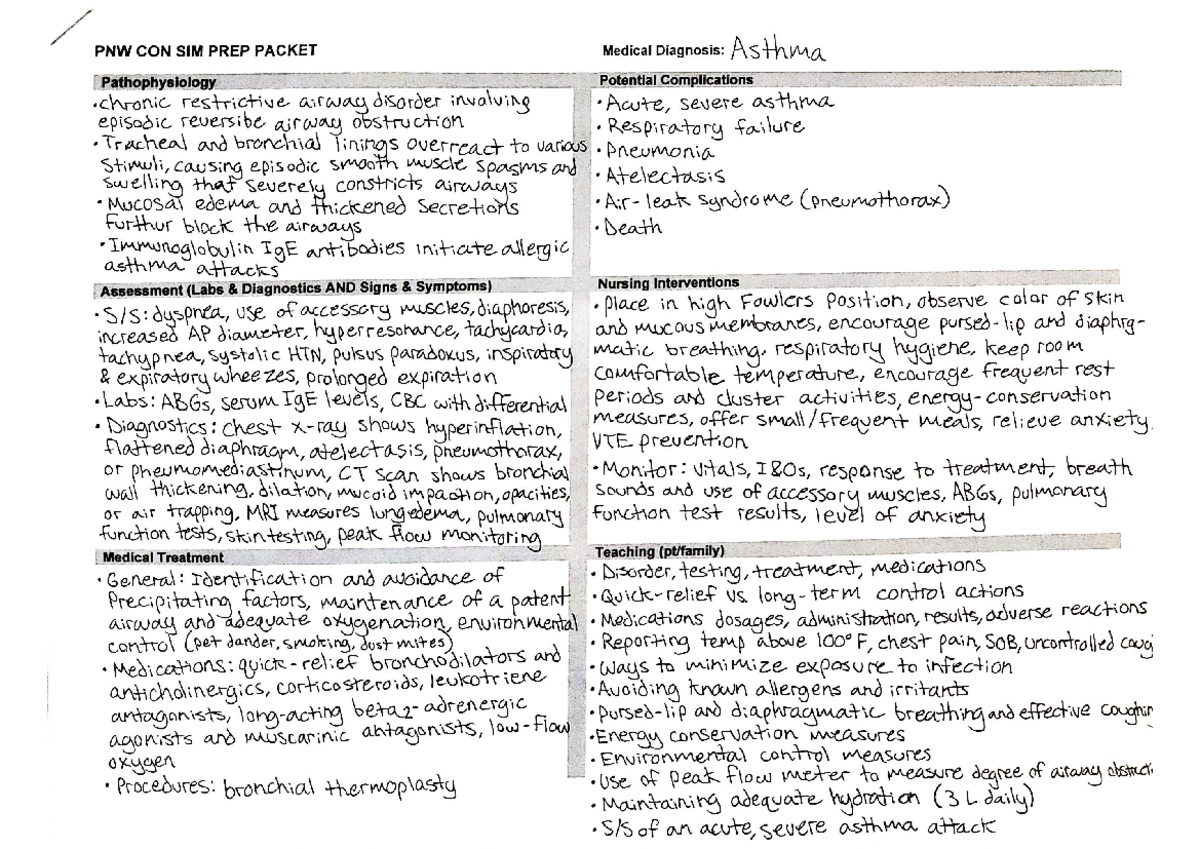 PNW CON SIM PREP PACKET
Medical Diagnosis: Asthma
Pathophysiology
•chronic restrictive airway disorder involving
episodic reversibe airway obstruction
•Tracheal and bronchial linings overreact to various
stimuli, causing episodic smooth muscle spasms and
swelling that severely constricts airways
•Mucosal edema and thickened secretions
furthur block the airways
•Immunoglobulin IgE antibodies initiate allergic
asthma attacks
Potential Complications
•Acute, severe asthma
•Respiratory failure
•Pneumonia
•Atelectasis
•Air-leak syndrome (pneumothorax)
•Death
Assessment (Labs & Diagnostics AND Signs & Symptoms)
•S/S: dyspnea, use of accessory muscles, diaphoresis,
increased AP diameter, hyperresonance, tachycardia,
tachypnea, systolic HTN, pulsus paradoxus, inspiratory
& expiratory wheezes, prolonged expiration
•Labs: ABGs, serum IgE levels, CBC with differential
•Diagnostics: chest x-ray shows hyperinflation,
flattened diaphragm, atelectasis, pneumothorax,
or pneumomediastinum, CT scan shows bronchial
wall thickening, dilation, mucoid impaction, opacities,
or air trapping, MRI measures lung edema, pulmonary
function tests, skin testing, peak flow monitoring
Nursing Interventions
•Place in high Fowlers position, observe color of skin
and mucous membranes, encourage pursed-lip and diaphrg-
matic breathing, respiratory hygiene, keep room
comfortable temperature, encourage frequent rest
periods and cluster activities, energy-conservation
measures, offer small/frequent meals, relieve anxiety
VTE prevention
•Monitor: vitals, I&Os, response to treatment, breath
sounds and use of accessory muscles, ABGs, pulmonary
function test results, level of anxiety
Medical Treatment
•General: Identification and avoidance of
precipitating factors, maintenance of a patent
airway and adequate oxygenation, environmental
control (pet dander, smoking, dust mites)
•Medications: quick-relief bronchodilators and
anticholinergics, corticosteroids, leukotriene
antagonists, long-acting beta2-adrenergic
agonists and muscarinic antagonists, low-flow
oxygen
•Procedures: bronchial thermoplasty
Teaching (pt/family)
•Disorder, testing, treatment, medications
•Quick-relief vs. long-term control actions
•Medications dosages, administration, results, adverse reactions
•Reporting temp above 100°F, chest pain, SOB, uncontrolled coug
•Ways to minimize exposure to infection
•Avoiding known allergens and irritants
•Pursed-lip and diaphragmatic breathing and effective coughin
•Energy conservation measures
•Environmental control measures
•Use of peak flow meter to measure degree of airway obstructi
•Maintaining adequate hydration (3 L daily)
•S/S of an acute, severe asthma attack